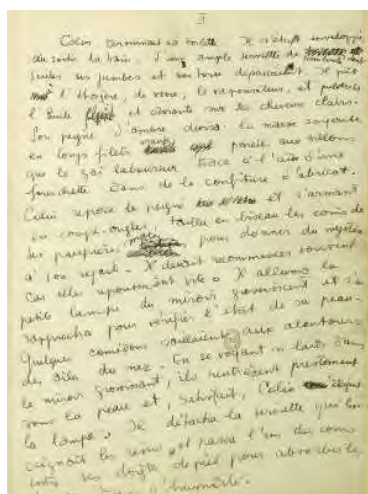 I
Colin terminait sa toilette. Il s'était enveloppé,
au sortir du bain, d'une ample serviette de
seules ses jambes et son torse dépassaient. Il prit
à l'étagère, de verre, le vaporisateur, et pulvérisa
l'huile fluide et odorante sur les cheveux clairs.
Son peigne d'ambre divisa la masse soyeuse
en longs filets orangés pareils aux sillons
que le gai laboureur trace à l'aide d'une
fourchette dans de la confiture d'abricot.
Colin reposa le peigne et s'armant
du coupe-ongles, tailla en biseau les coins de
ses paupières mates pour donner du mystère
à son regard. Il devait recommencer souvent
car elles repoussaient vite. Il alluma la
petite lampe du miroir grossissant et s'en
rapprocha pour vérifier l'état de sa peau.
Quelques comédons saillaient aux alentours
des ailes du nez. En se voyant si laids dans
le miroir grossissant, ils rentrèrent prestement
sous la peau et, satisfait, Colin éteignit
la lampe. Il détacha la serviette qui lui
ceignait les reins et passa l'un des coins
entre ses doigts de pied pour absorber les
d'humidité.